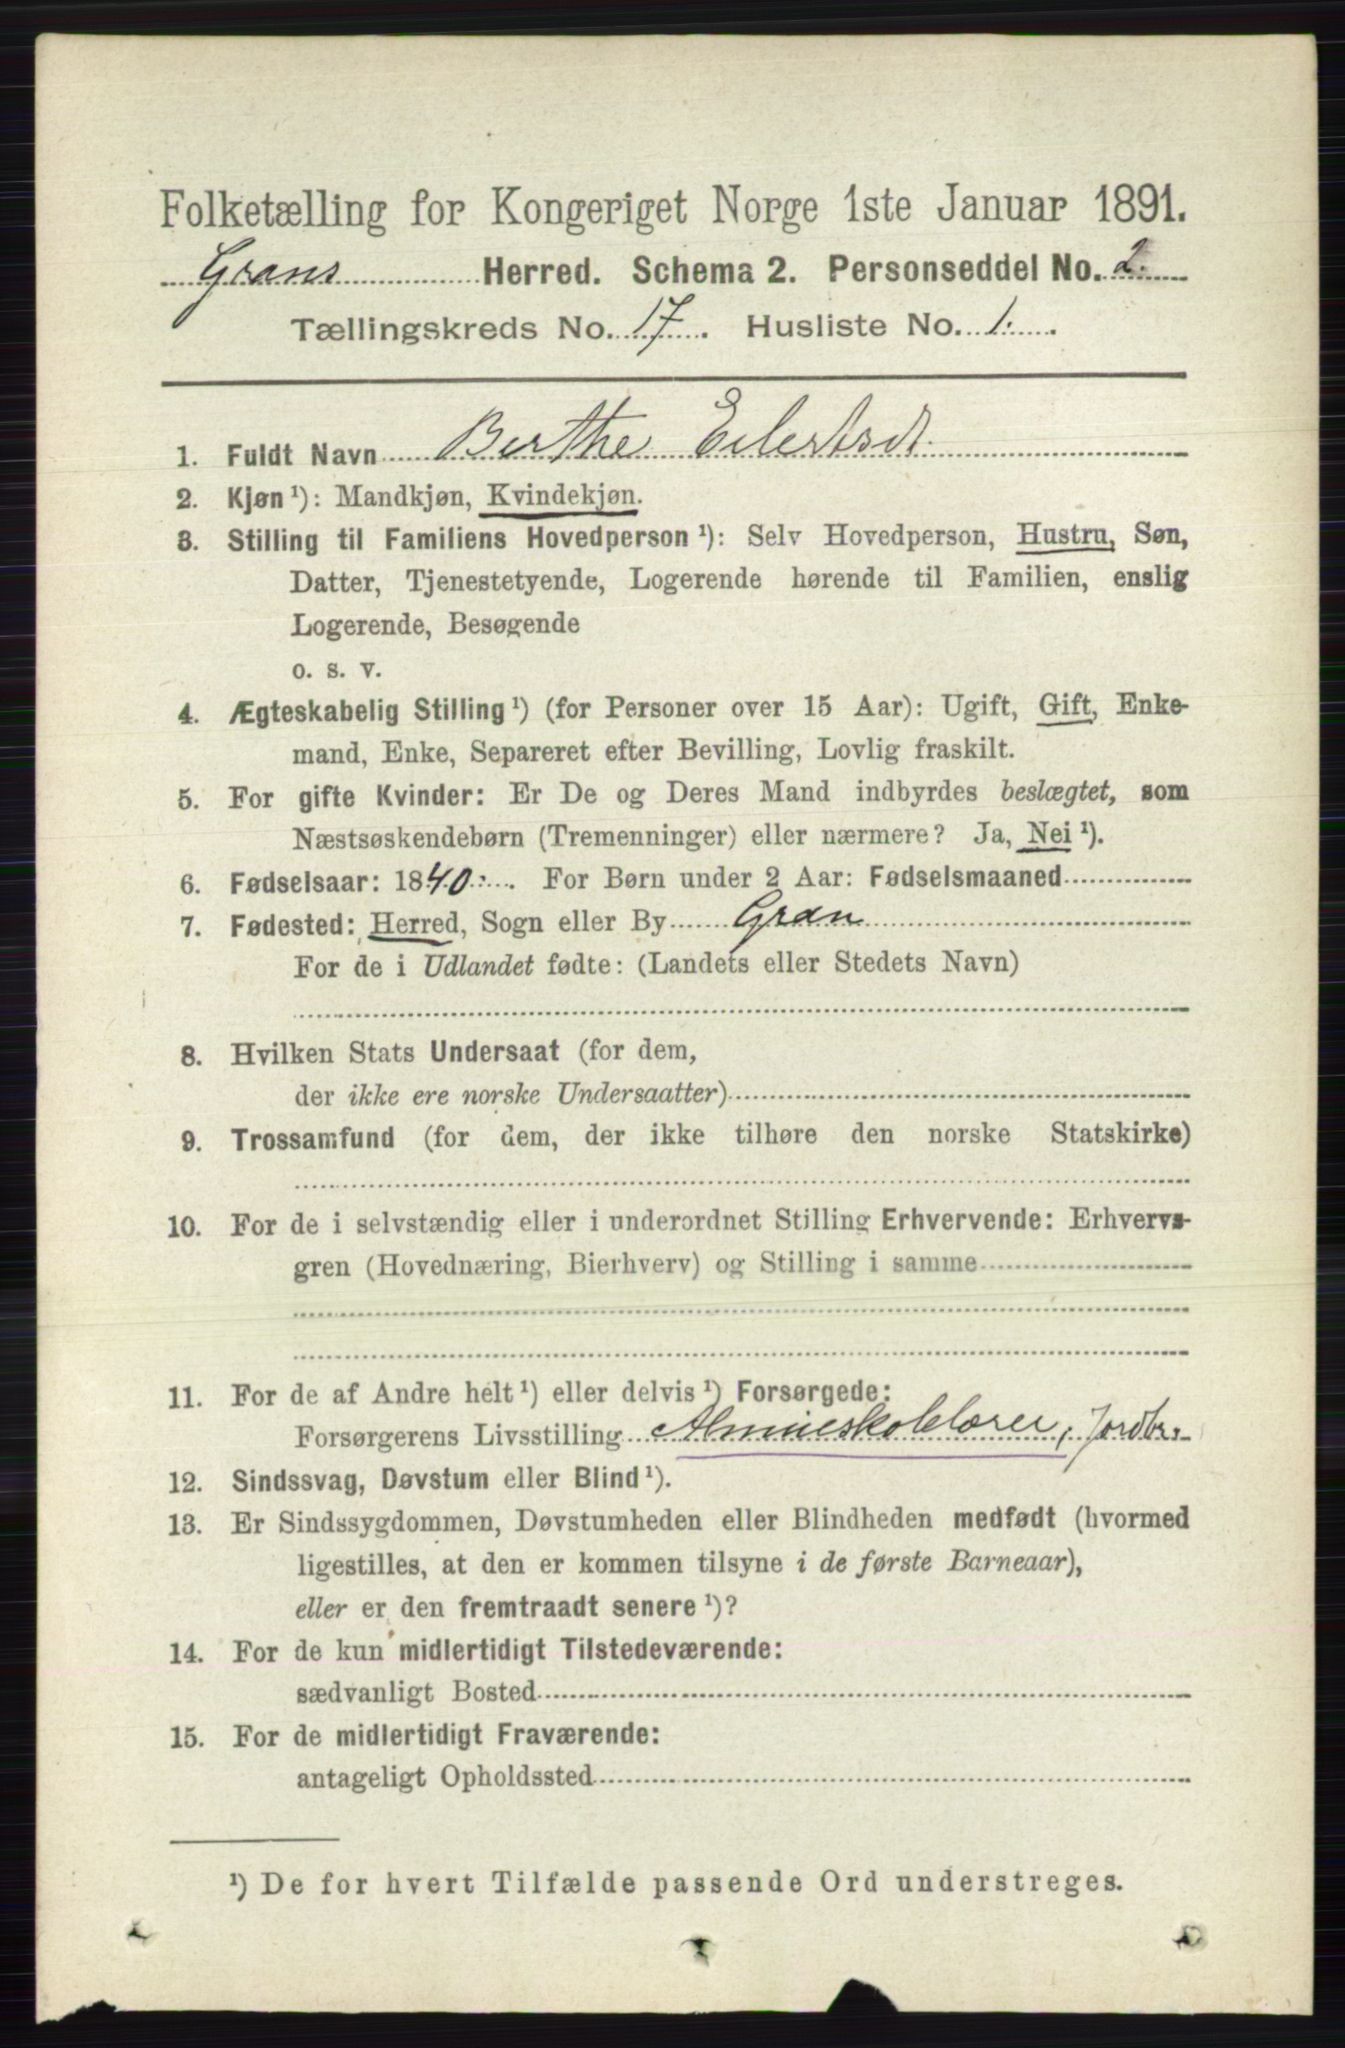 Folketælling for Kongeriget Norge 1ste Januar 1891.
Grans Herred. Schema 2. Personseddel No. 2.
Tællingskreds No. 17. Husliste No. 1.
1. Fuldt Navn Berthe Eilertsdt.
2. Kjøn ¹): Mandkjøn, Kvindekjøn.
3. Stilling til Familiens Hovedperson ¹): Selv Hovedperson, Hustru, Søn,
Datter, Tjenestetyende, Logerende hørende til Familien, enslig
Logerende, Besøgende
o. s. v.
4. Ægteskabelig Stilling ¹) (for Personer over 15 Aar): Ugift, Gift, Enke-
mand, Enke, Separeret efter Bevilling, Lovlig fraskilt.
5. For gifte Kvinder: Er De og Deres Mand indbyrdes beslægtet, som
Næstsøskendebørn (Tremenninger) eller nærmere? Ja, Nei ¹).
6. Fødselsaar: 1840. For Børn under 2 Aar: Fødselsmaaned
7. Fødested: Herred, Sogn eller By Gran
For de i Udlandet fødte: (Landets eller Stedets Navn)
8. Hvilken Stats Undersaat (for dem,
der ikke ere norske Undersaatter)
9. Trossamfund (for dem, der ikke tilhøre den norske Statskirke)
10. For de i selvstændig eller i underordnet Stilling Erhvervende: Erhvervs-
gren (Hovednæring, Bierhverv) og Stilling i samme
11. For de af Andre helt ¹) eller delvis ¹) Forsørgede:
Forsørgerens Livsstilling Almueskolelærer, Jordbr.
12. Sindssvag, Døvstum eller Blind ¹).
13. Er Sindssygdommen, Døvstumheden eller Blindheden medfødt (hvormed
ligestilles, at den er kommen tilsyne i de første Barneaar),
eller er den fremtraadt senere ¹)?
14. For de kun midlertidigt Tilstedeværende:
sædvanligt Bosted
15. For de midlertidigt Fraværende:
antageligt Opholdssted
¹) De for hvert Tilfælde passende Ord understreges.